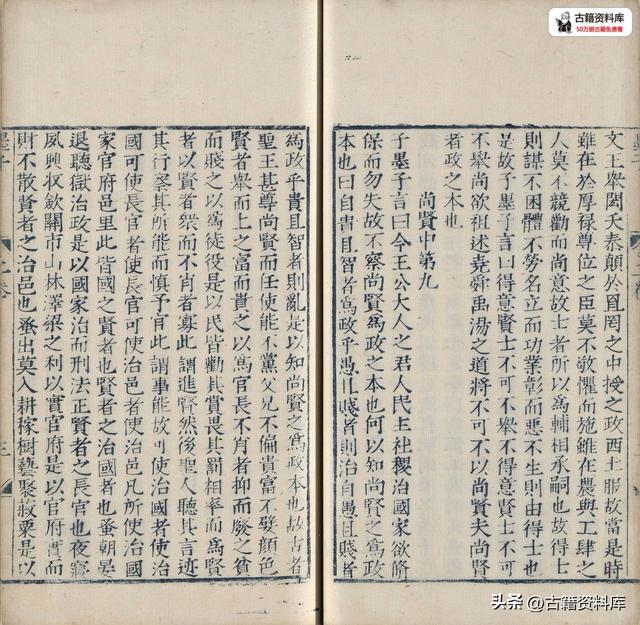 古籍资料库
50万册古籍免费看
文王舉閎夭泰顛於罝罔之中授之政西土服故當是時
雖在於厚祿尊位之臣莫不敬懼而施雖在農與工肆之
人莫不競勸而尚意故士者所以爲輔相承嗣也故得士
則謀不困體不勞名立而功業彰而惡不生則由得士也
是故子墨子言曰得意賢士不可不舉不得意賢士不可
不舉尚欲祖述堯舜禹湯之道將不可不以尚賢夫尚賢
者政之本也
尚賢中第九
子墨子言曰今王公大人之君人民主社稷治國家欲脩
保而勿失故不察尚賢爲政之本也何以知尚賢之爲政
本也曰自貴且智者爲政乎愚且賤者則治自愚且賤者
爲政乎貴且智者則亂是以知尚賢之爲政本也故古者
聖王甚尊尚賢而任使能不黨父兄不偏貴富不嬖顏色
賢者舉而上之富而貴之以爲官長不肖者抑而廢之貧
而賤之以爲徒役是以民皆勸其賞畏其罰相率而爲賢
者以賢者衆而不肖者寡此謂進賢然後聖人聽其言迹
其行察其所能而慎予官此謂事能故可使治國者使治
國可使長官者使長官可使治邑者使治邑凡所使治國
家官府邑里此皆國之賢者也賢者之治國者也蚤朝晏
退聽獄治政是以國家治而刑法正賢者之長官也夜寢
夙興收斂關市山林澤梁之利以實官府是以官府實而
財不散賢者之治邑也蚤出莫入耕稼樹藝聚菽粟是以
头条 @古籍资料库